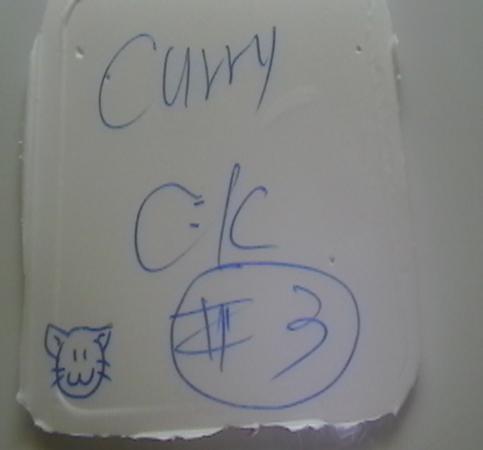 Curry
C=K
# 3